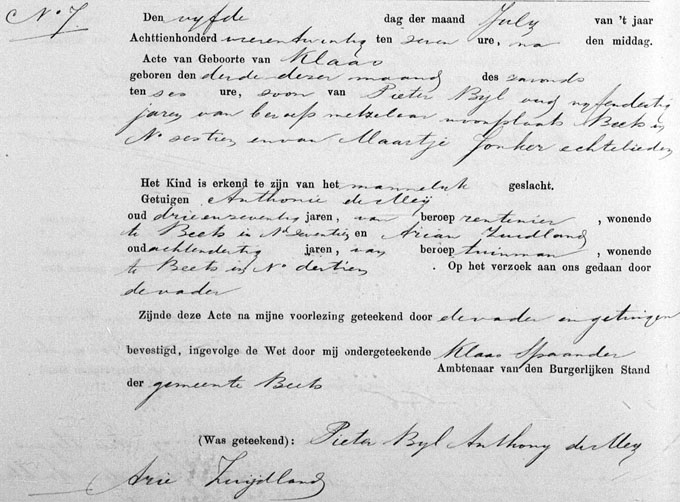 No 7.
Den vyfde dag der maand July van 't jaar
Achttienhonderd vierentwintig ten zeven ure, na den middag.
Acte van Geboorte van Klaas
geboren den derde dezer maand des savonds
ten ses ure, soon van Pieter Byl oud vyfendertig
jaren van beroep metzelaar woonplaats Beets in
No sestien en van Maartje Jonker echtelieden
Het Kind is erkend te zijn van het mannelyk geslacht.
Getuigen Anthonie de Meij
oud drieenzeventig jaren, van beroep rentenier, wonende
te Beets in No seventien en Arian Zuidland
oud achtendertig jaren, van beroep tuinman, wonende
te Beets in No dertien. Op het verzoek aan ons gedaan door
de vader
Zijnde deze Acte na mijne voorlezing geteekend door de vader en getuigen
bevestigd, ingevolge de Wet door mij ondergeteekende Klaas Spaander
Ambtenaar van den Burgerlijken Stand
der gemeente Beets
(Was geteekend): Pieter Byl Anthony de Mey
Arie Zuijdland